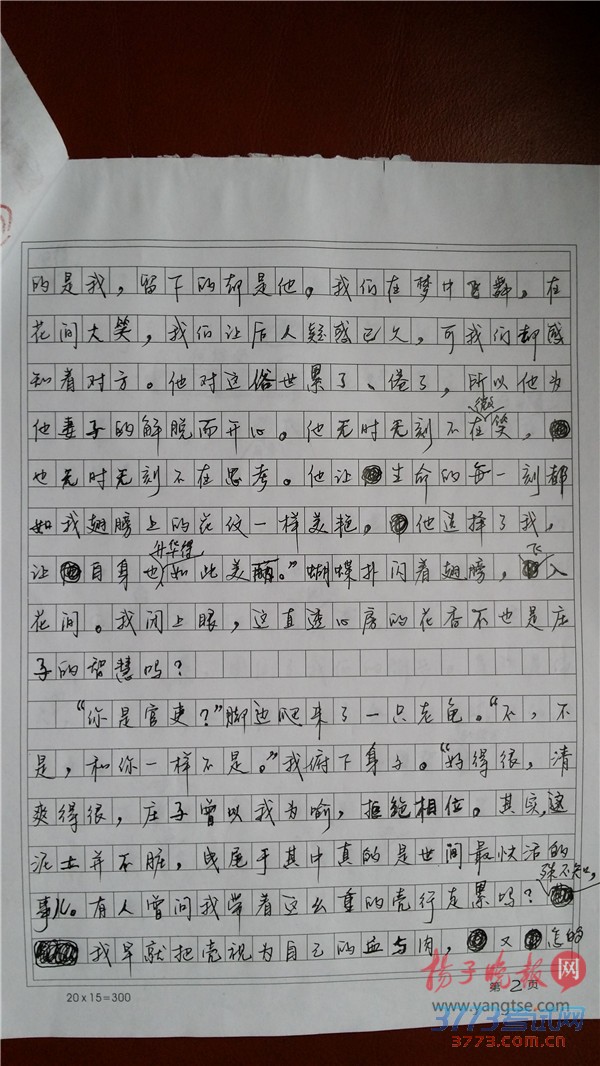 的是我，留下的却是他。我们在梦中飞舞，在
花间大笑，我们让后人疑惑已久，可我们却感
知着对方。他对这俗世累了、倦了，所以他为
他妻子的解脱而开心。他无时无刻不在微笑，
也无时无刻不在思考。他让生命的每一刻都
如我翅膀上的花纹一样美艳。他选择了我，
让自身也升华得如此美丽。”蝴蝶扑闪着翅膀，飞入
花间。我闭上眼，这直透心房的花香不也是庄
子的智慧吗？
“你是官吏？”脚边爬来了一只老龟。“不，不
是，和你一样不是。”我俯下身子。“好得很，清
爽得很，庄子曾以我为喻，拒绝相位。其实，这
泥土并不脏，曳尾于其中真的是世间最快活的
事儿。有人曾问我带着这么重的壳行走累吗？殊不知，
我早就把壳视为自己的血与肉，又怎的
20×15=300
第2页
扬子晚报网
www.yangtse.com
3773考试网
3773.com.cn